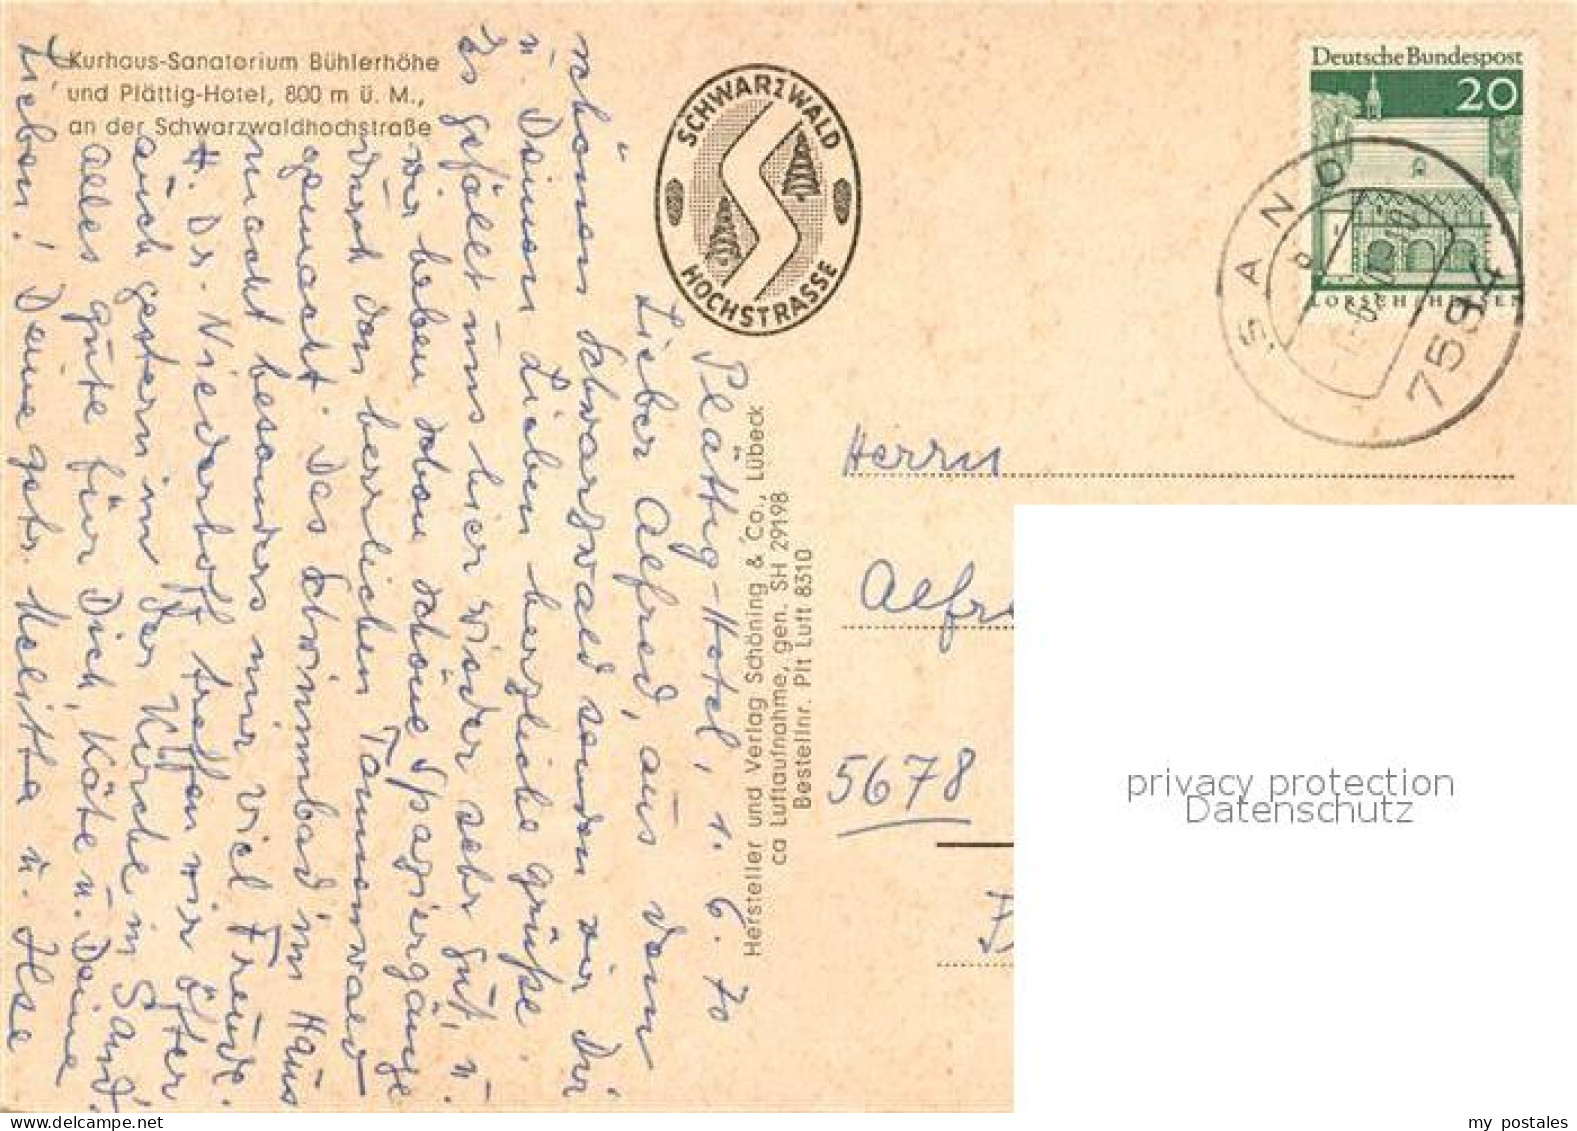 Kurhaus-Sanatorium Bühlerhöhe
und Plättig-Hotel, 800 m ü. M.,
an der Schwarzwaldhochstraße
SCHWARZWALD
HOCHSTRASSE
Deutsche Bundespost
20
LORSCH/HESSEN
SAND
7594
Plättig-Hotel, 1. 6. 70
Lieber Alfred, aus dem
schönen Schwarzwald senden wir Dir
u. Deinen Lieben herzliche Grüße.
Es gefällt uns hier wieder sehr gut, u.
wir haben schon schöne Spaziergänge
durch den herrlichen Tannenwald
gemacht. Das Schwimmbad im Haus
macht besonders mir viel Freude.
H. Dr. Niederhoff treffen wir öfter
auch gestern in der Kirche in Sand.
alles gute für Dich, Käte u. Deine
Lieben! Deine getr. Melitta u. Ilse
Hersteller und Verlag Schöning & Co., Lübeck
ca Luftaufnahme, gen. SH 29198
Bestellnr. Plt Luft 8310
Herrn
Alfre
5678
privacy protection
Datenschutz
my postales